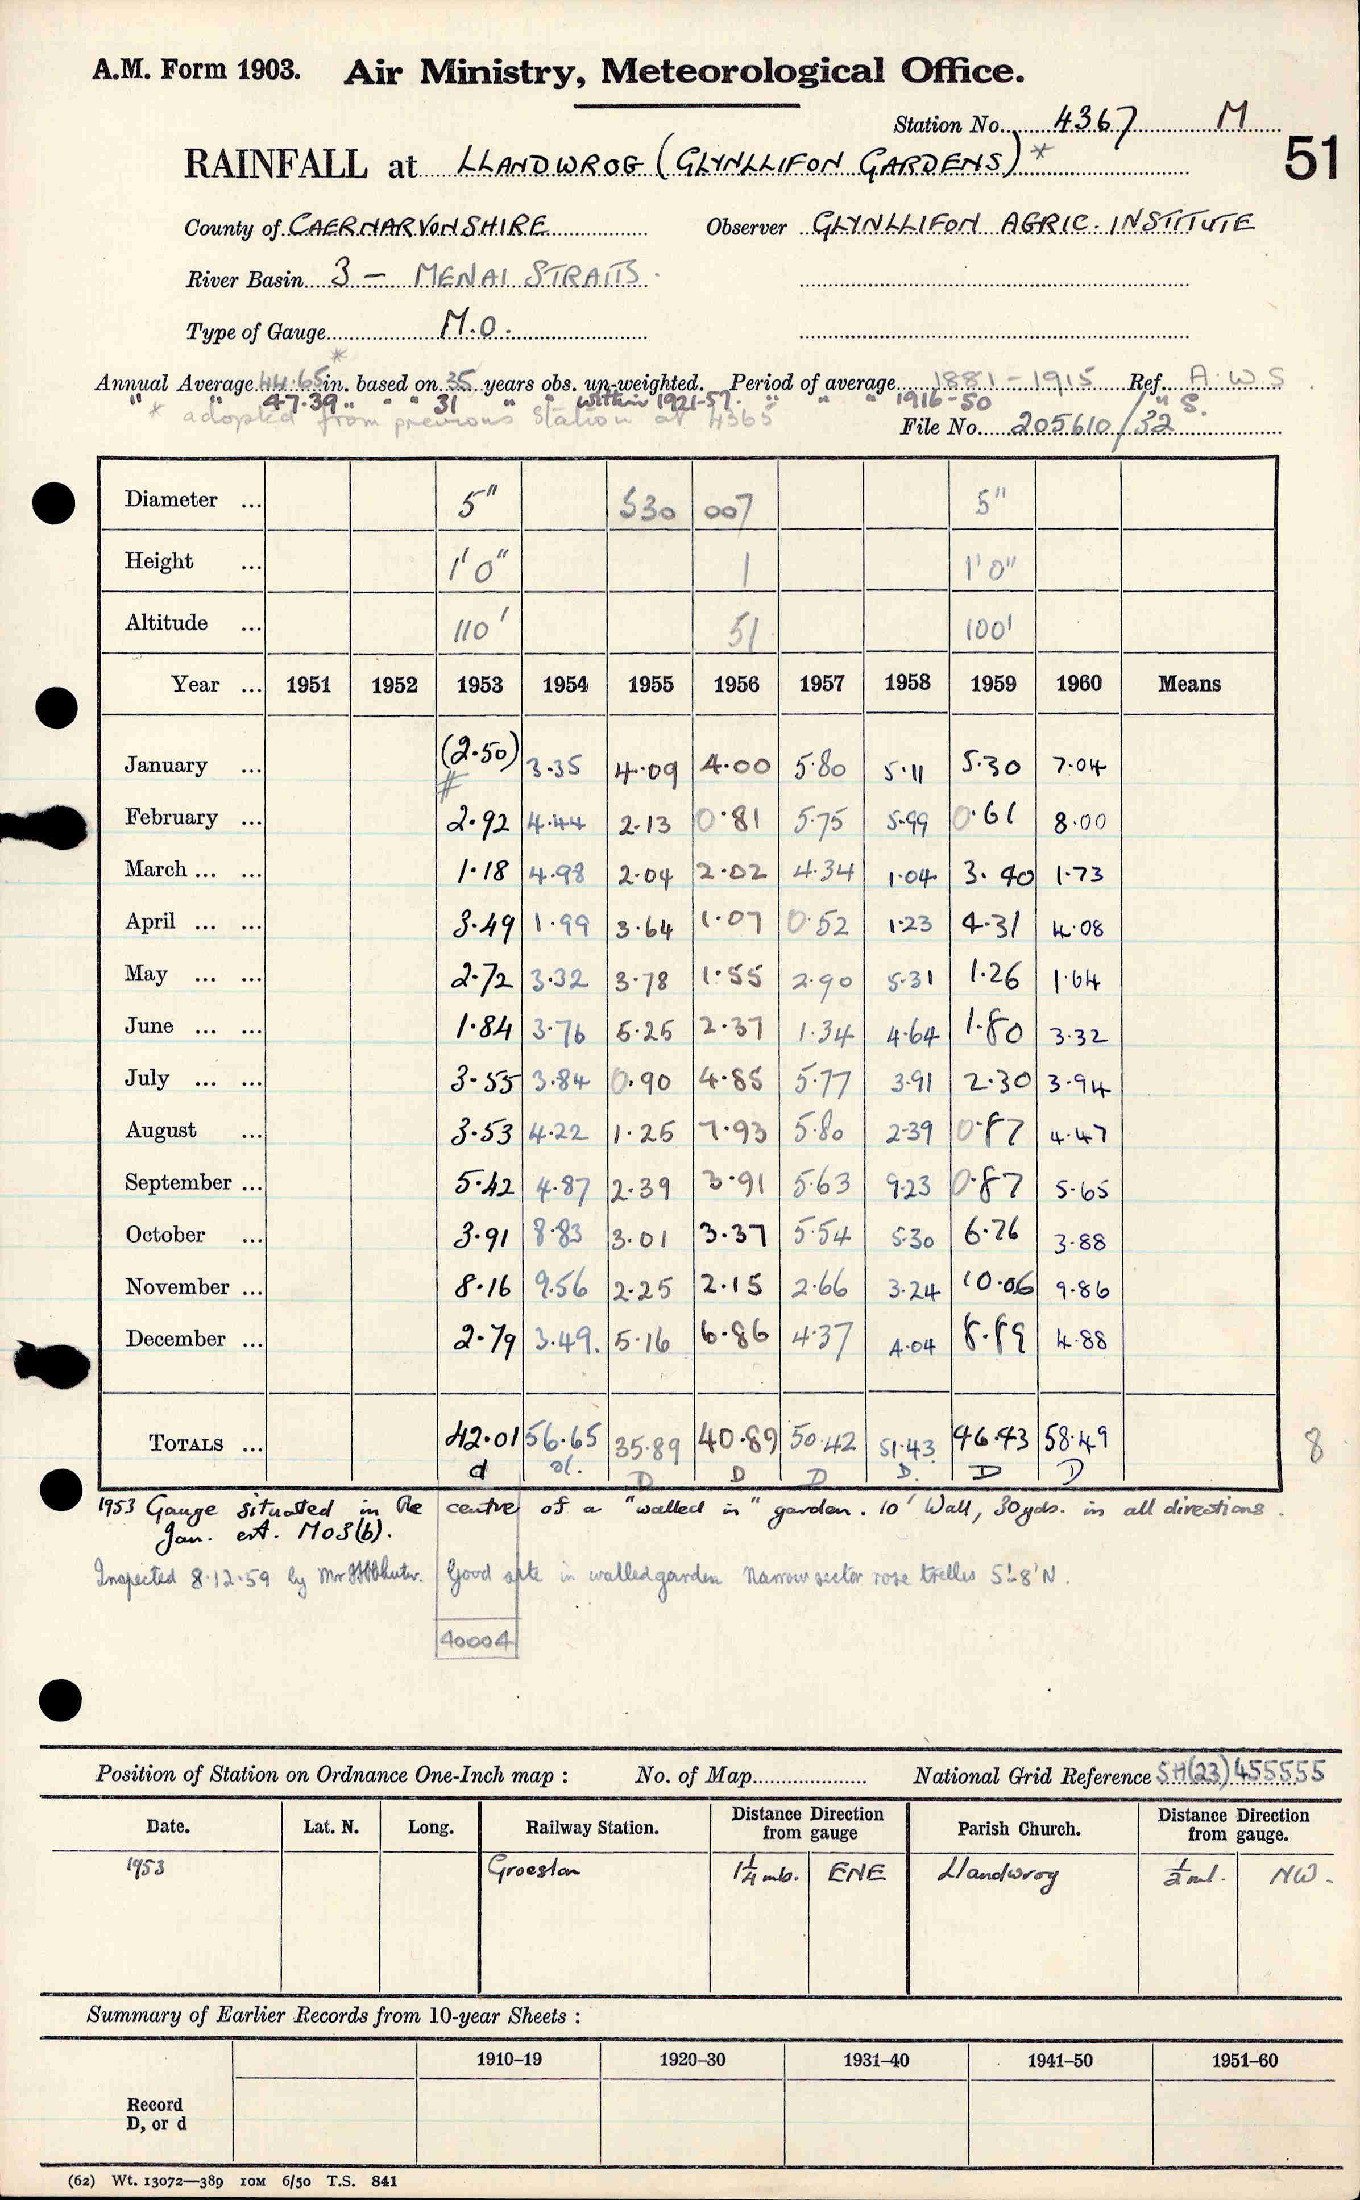 A.M. Form 1903. Air Ministry, Meteorological Office.
Station No. 4367 M
51
RAINFALL at LLANDWROG (GLYNLLIFON GARDENS) *
County of CAERNARVONSHIRE Observer GLYNLLIFON AGRIC. INSTITUTE
River Basin 3 – MENAI STRAITS.
Type of Gauge M.O.
*
Annual Average 44.65 in. based on 35 years obs. un-weighted. Period of average 1881–1915 Ref. A.W.S.
" " 47.39 " " " 31 " " within 1921-57. " " " 1916-50 " S.
* adopted from previous station at 4365
File No. 205610/32
Diameter ... 5" 530 007 5"
Height ... 1'0" 1 1'0"
Altitude ... 110' 51 100'
Year ... 1951 1952 1953 1954 1955 1956 1957 1958 1959 1960 Means
January ... (2.50) # 3.35 4.09 4.00 5.80 5.11 5.30 7.04
February ... 2.92 4.44 2.13 0.81 5.75 5.99 0.61 8.00
March ... ... 1.18 4.98 2.04 2.02 4.34 1.04 3.40 1.73
April ... ... 3.49 1.99 3.64 1.07 0.52 1.23 4.31 4.08
May ... ... 2.72 3.32 3.78 1.55 2.90 5.31 1.26 1.64
June ... ... 1.84 3.76 5.25 2.37 1.34 4.64 1.80 3.32
July ... ... 3.55 3.84 0.90 4.85 5.77 3.91 2.30 3.94
August ... 3.53 4.22 1.25 7.93 5.80 2.39 0.87 4.47
September ... 5.42 4.87 2.39 3.91 5.63 9.23 0.87 5.65
October ... 3.91 8.83 3.01 3.37 5.54 5.30 6.76 3.88
November ... 8.16 9.56 2.25 2.15 2.66 3.24 10.06 9.86
December ... 2.79 3.49. 5.16 6.86 4.37 4.04 8.89 4.88
TOTALS ... 42.01 56.65 35.89 40.89 50.42 51.43 46.43 58.49 8
d d. D D D D. D D
1953 Gauge situated in the centre of a "walled in" garden. 10' Wall, 30yds. in all directions.
Jan. est. MO3(b).
Inspected 8.12.59 by Mr Good site in walled garden Narrow sector rose trellis 5'-8'N.
40004
Position of Station on Ordnance One-Inch map : No. of Map National Grid Reference SH(23)455555
Date. Lat. N. Long. Railway Station. Distance Direction from gauge Parish Church. Distance Direction from gauge.
1953 Groeslon 1¼ mls. ENE Llandwrog ½ ml. NW.
Summary of Earlier Records from 10-year Sheets :
1910–19 1920–30 1931–40 1941–50 1951–60
Record
D, or d
(62) Wt. 13072—389 10M 6/50 T.S. 841